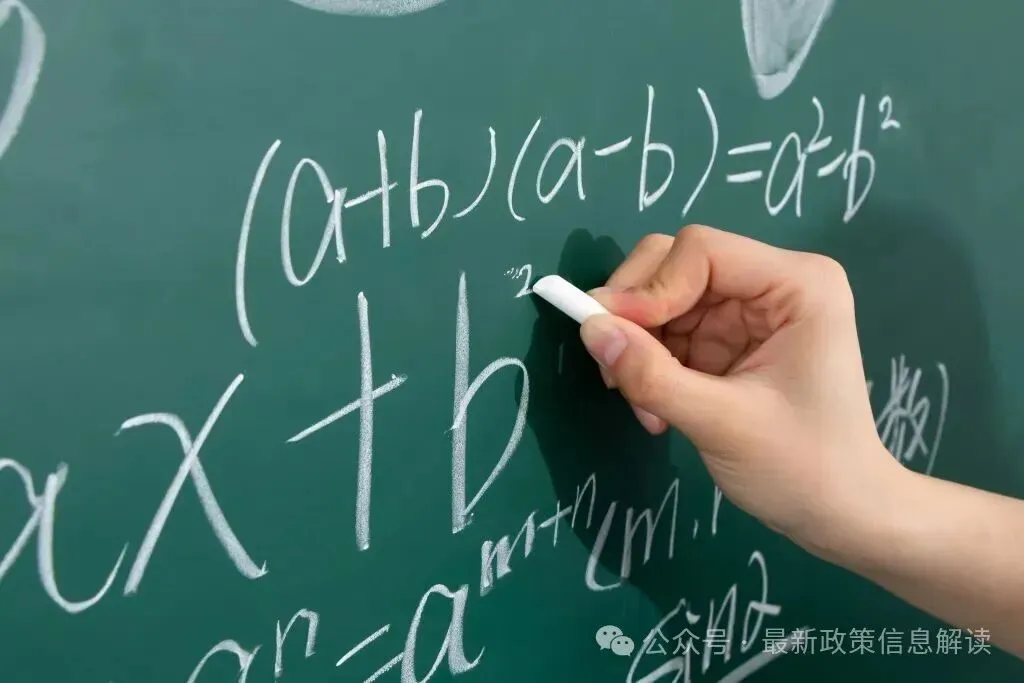 (a+b)(a-b)=a²-b²
ax+b²
数)
aⁿ=aᵐ⁺ⁿ(m,n
sin2
公众号 · 最新政策信息解读